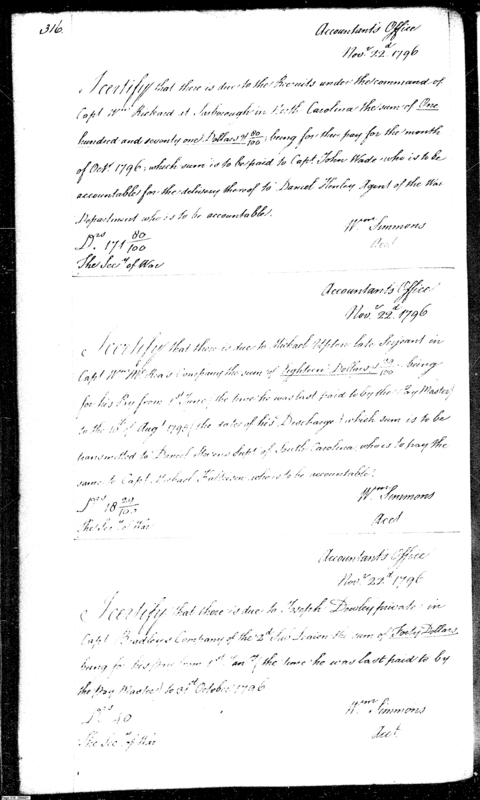 316.
Accountant's Office
Nov.r 22.d 1796
I certify that there is due to the Recruits under the command of
Capt Wm Rickard at Tarborough in North Carolina the sum of One
hundred and seventy one Dollars & 80/100, being for their pay for the month
of Oct.r 1796, which sum is to be paid to Capt. John Wade who is to be
accountable for the delivery thereof to Daniel Henley Agent of the War
Department who is to be accountable.
Drs. 171 80/100
Wm Simmons
Acct
The Secy of War
Accountant's Office
Nov.r 22.d 1796
I certify that there is due to Michael Upton late Serjeant in
Capt Wm McRea's Company the sum of Eighteen Dollars & /100 being
for his from 1st June (the time he was last paid to by the Pay Master)
to the of Augt 179 (the date of his Discharge) which sum is to be
transmitted to Daniel Stevens Supt of South Carolina, who is to pay the
same to Capt. Michael who is to be accountable.
Drs 18 /100
Wm Simmons
Acct
The Secy of War
Accountant's Office
Nov.r 22.d 1796
I certify that there is due to Joseph Dowley private in
Capt Bradleys Company of the 2d Sub Legion the sum of Forty Dollars
being for his from 1st Jany (the time he was last paid to by
the Pay Master) to 31st October 1796
Drs 40
Wm Simmons
Acct.
The Secy of War